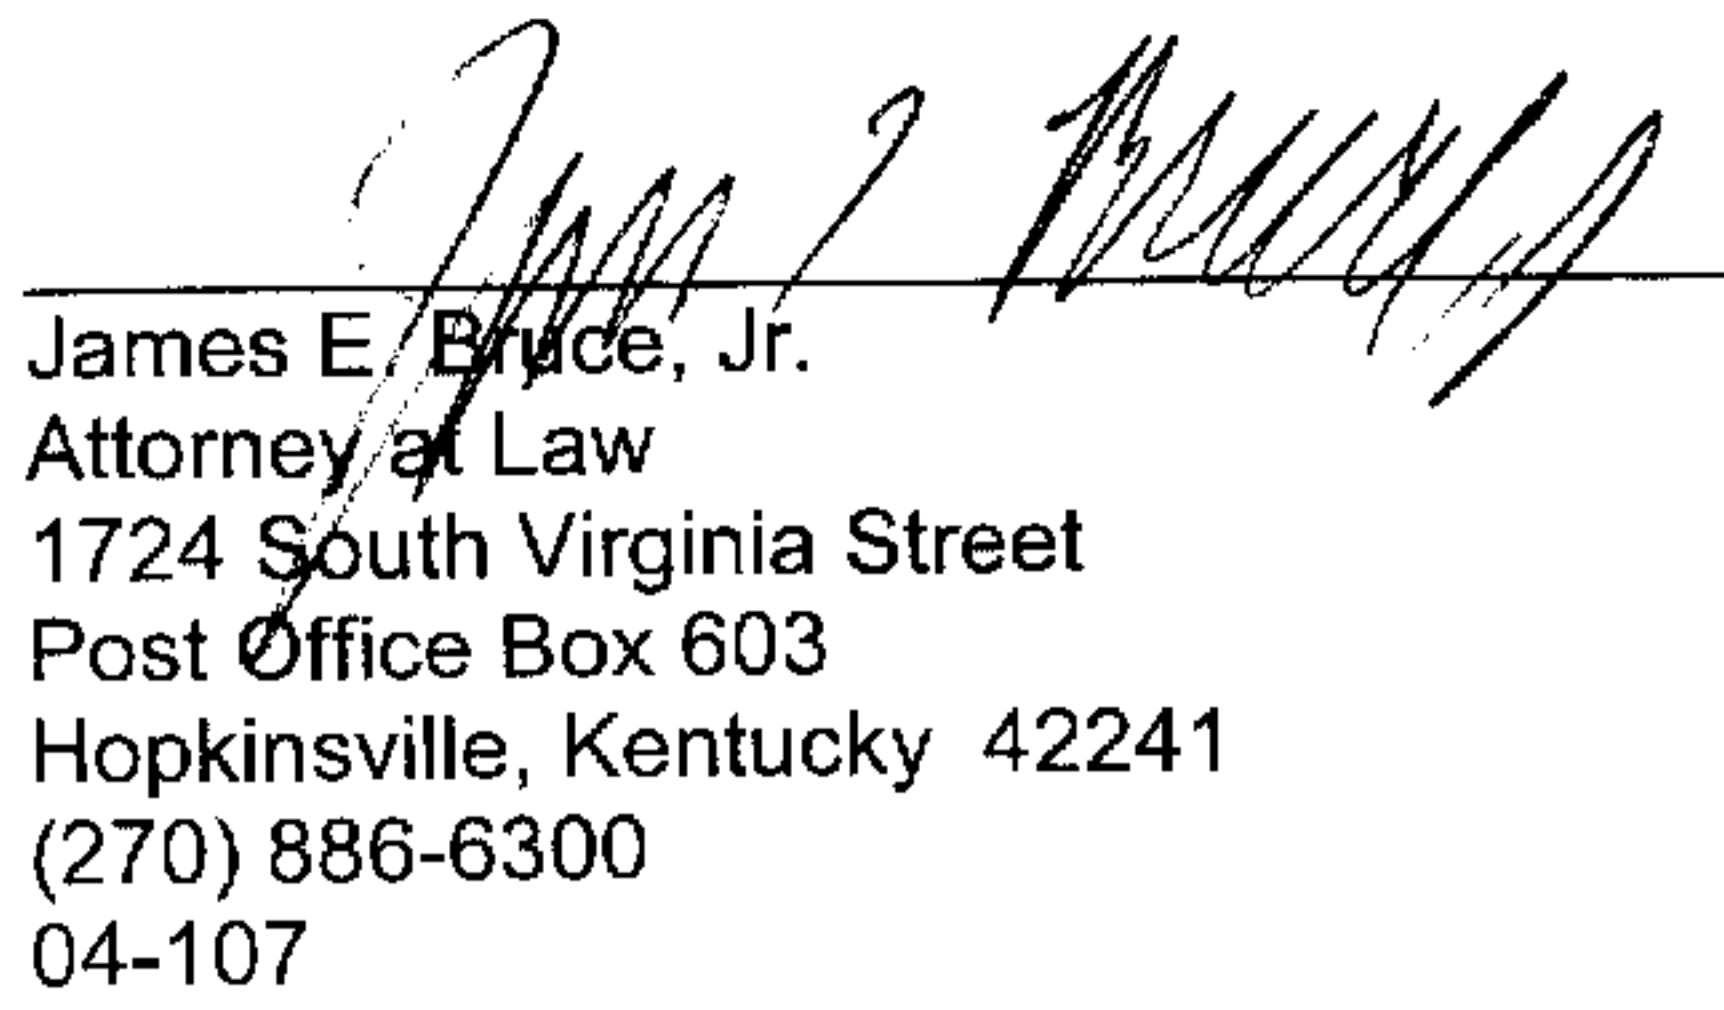 James E. Bruce, Jr.
Attorney at Law
1724 South Virginia Street
Post Office Box 603
Hopkinsville, Kentucky  42241
(270) 886-6300
04-107